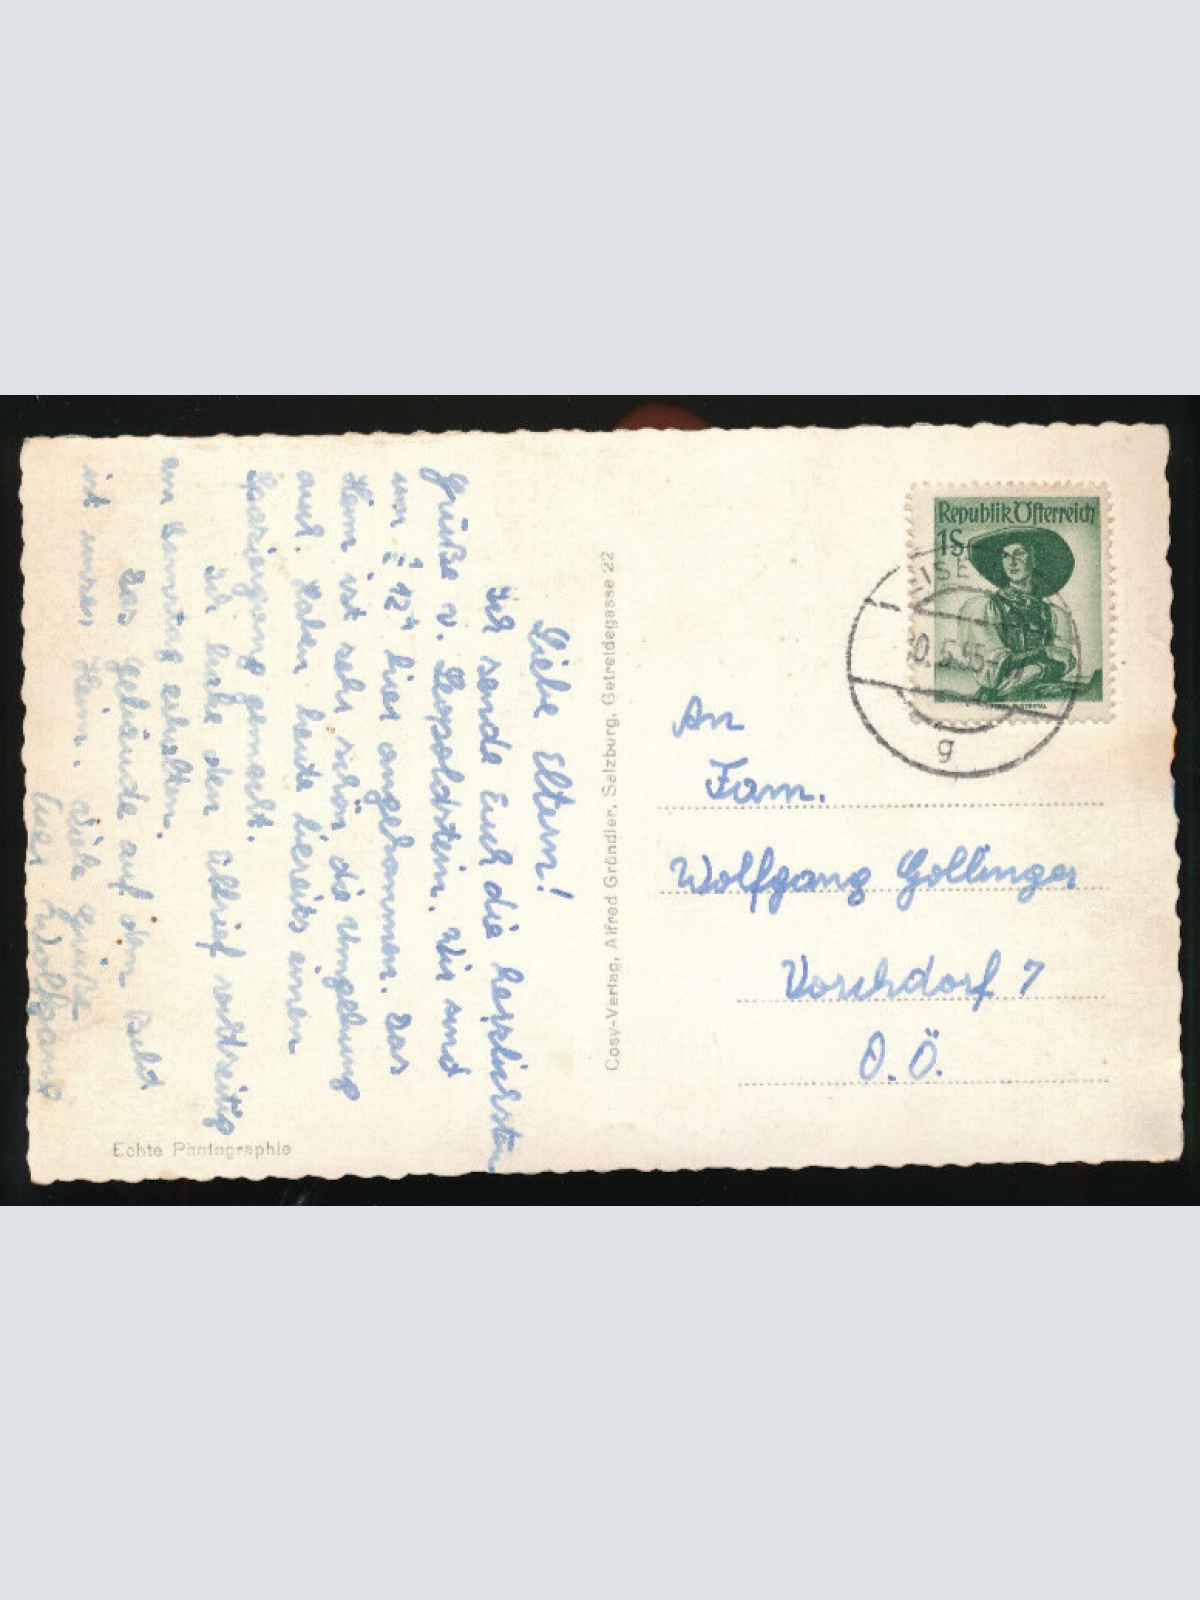 Liebe Eltern!
Ich sende Euch die herzlichsten
Grüße v. Leopoldstein. Wir sind
um ½ 12ʰ hier angekommen. Das
Heim ist sehr schön die Umgebung
auch. Haben heute bereits einen
Spaziergang gemacht.
Ich habe den rechtzeitig
am Samstag erhalten.
Das Gebäude auf dem Bild
ist unser Heim. Viele Grüße
Euer Wolfgang
Echte Photographie
Cosy-Verlag, Alfred Gründler, Salzburg, Getreidegasse 22
Republik Österreich
1S
EISE
0.5.55-
g
An
Fam.
Wolfgang Gollinger
Vorchdorf 7
O.Ö.